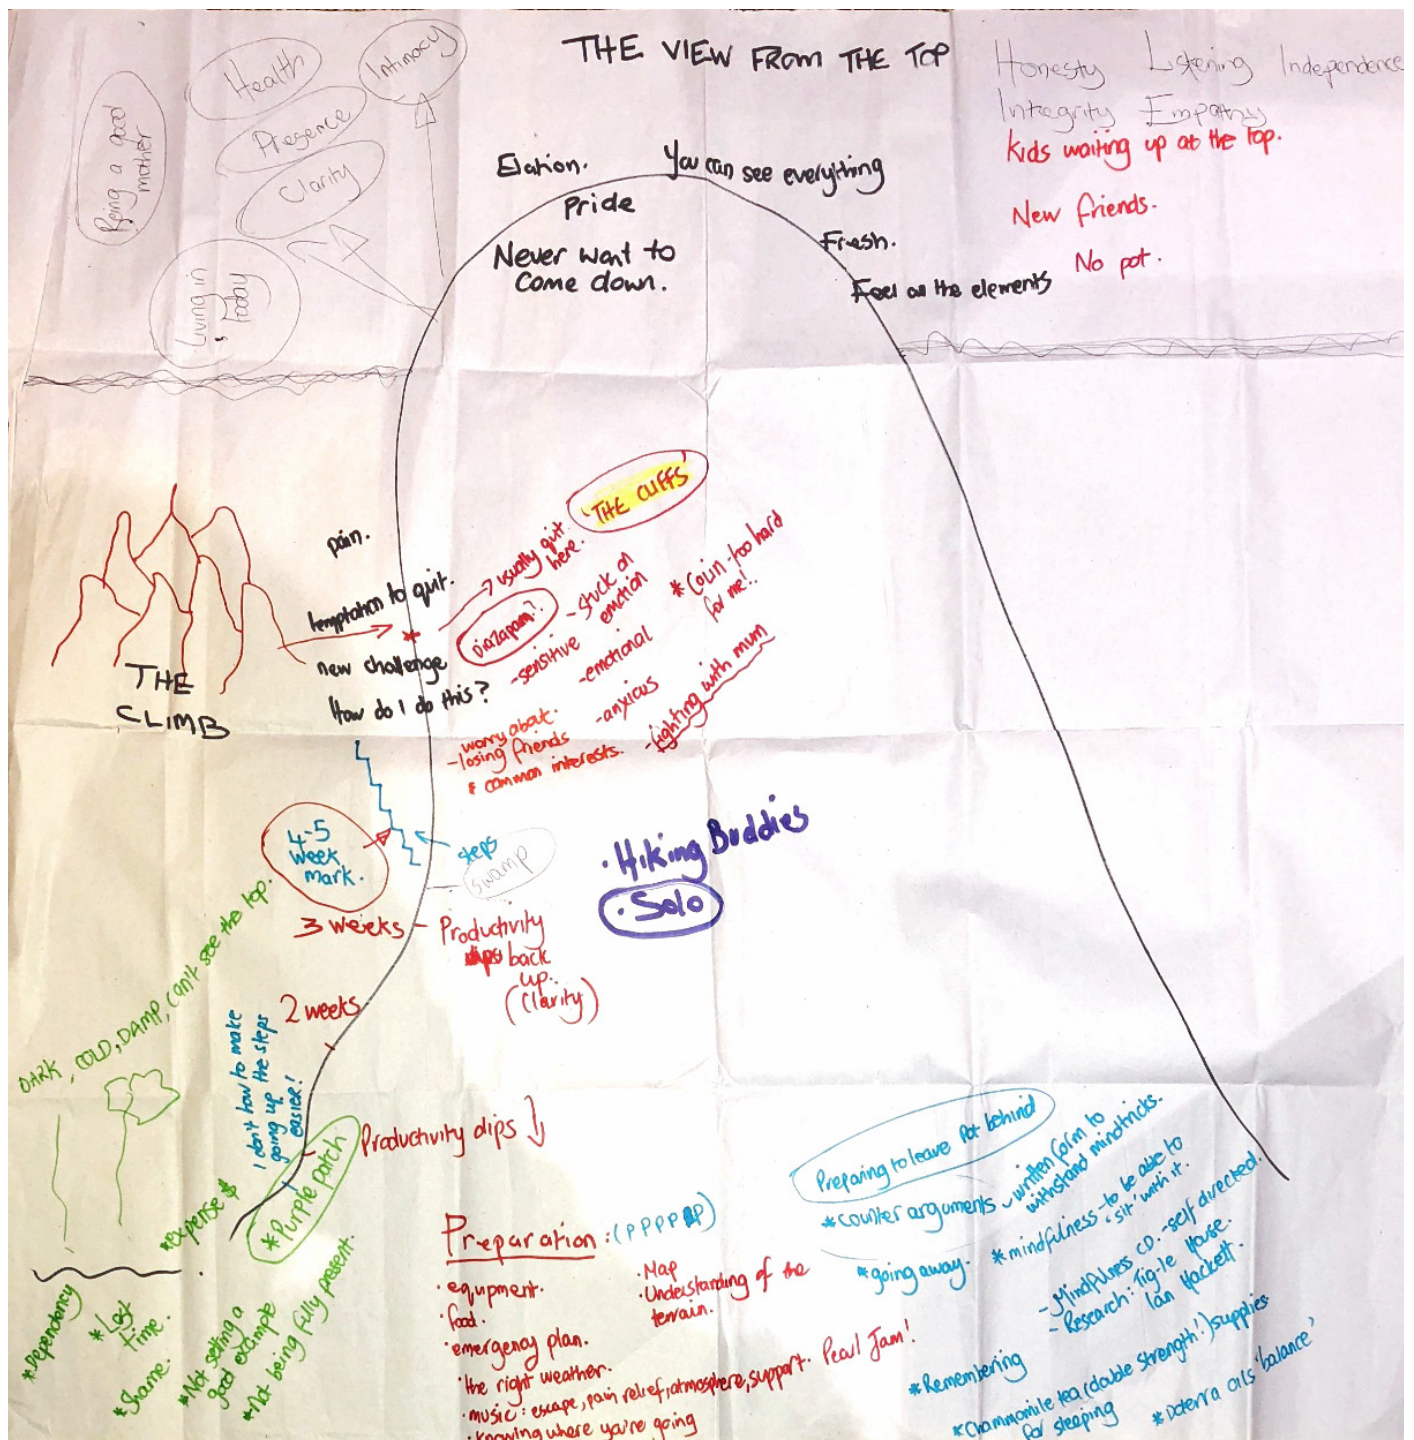 THE VIEW FROM THE TOP
Health
Intimacy
Being a good
mother
Presence
Clarity
Living in
Today
Honesty Listening Independence
Integrity Empathy
Kids waiting up at the top.
New friends.
No pot.
Elation.
You can see everything
Pride
Never want to
come down.
Fresh.
Feel all the elements
THE
CLIMB
pain.
temptation to quit.
new challenge
How do I do this?
'THE CLIFFS'
usually quit
here.
Diazapam?
- stuck on
emotion
* Coun - too hard
for me!.
- sensitive
- emotional
- anxious
- fighting with mum
- worry about
losing friends
& common interests.
4-5
week
mark.
steps
swamp
• Hiking Buddies
• Solo
3 weeks - Productivity
back
up.
(Clarity)
2 weeks
DARK, COLD, DAMP, Can't see the top.
I don't how to make
going up the steps
easier!
Productivity dips ↓
* Purple patch
* expense $
* Dependency
* Lost
time.
* Shame.
* Not setting a
good example
* Not being fully present.
Preparation: (PPPP P)
• equpment.
• food.
• emergency plan.
• the right weather.
• music: escape, pain relief, atmosphere, support. Pearl Jam!
• knowing where you're going
• Map
• Understanding of the
terrain.
Preparing to leave Pot behind
* counter arguments - written form to
withstand mindtricks.
* going away.
* mindfulness - to be able to
'sit' with it.
- Mindfulness CD. - self directed.
- Research: Tig-le House.
Ian Hackett.
* Remembering
* Chammomile tea (double strength!) supplies
for sleeping
* Doterra oils 'balance'